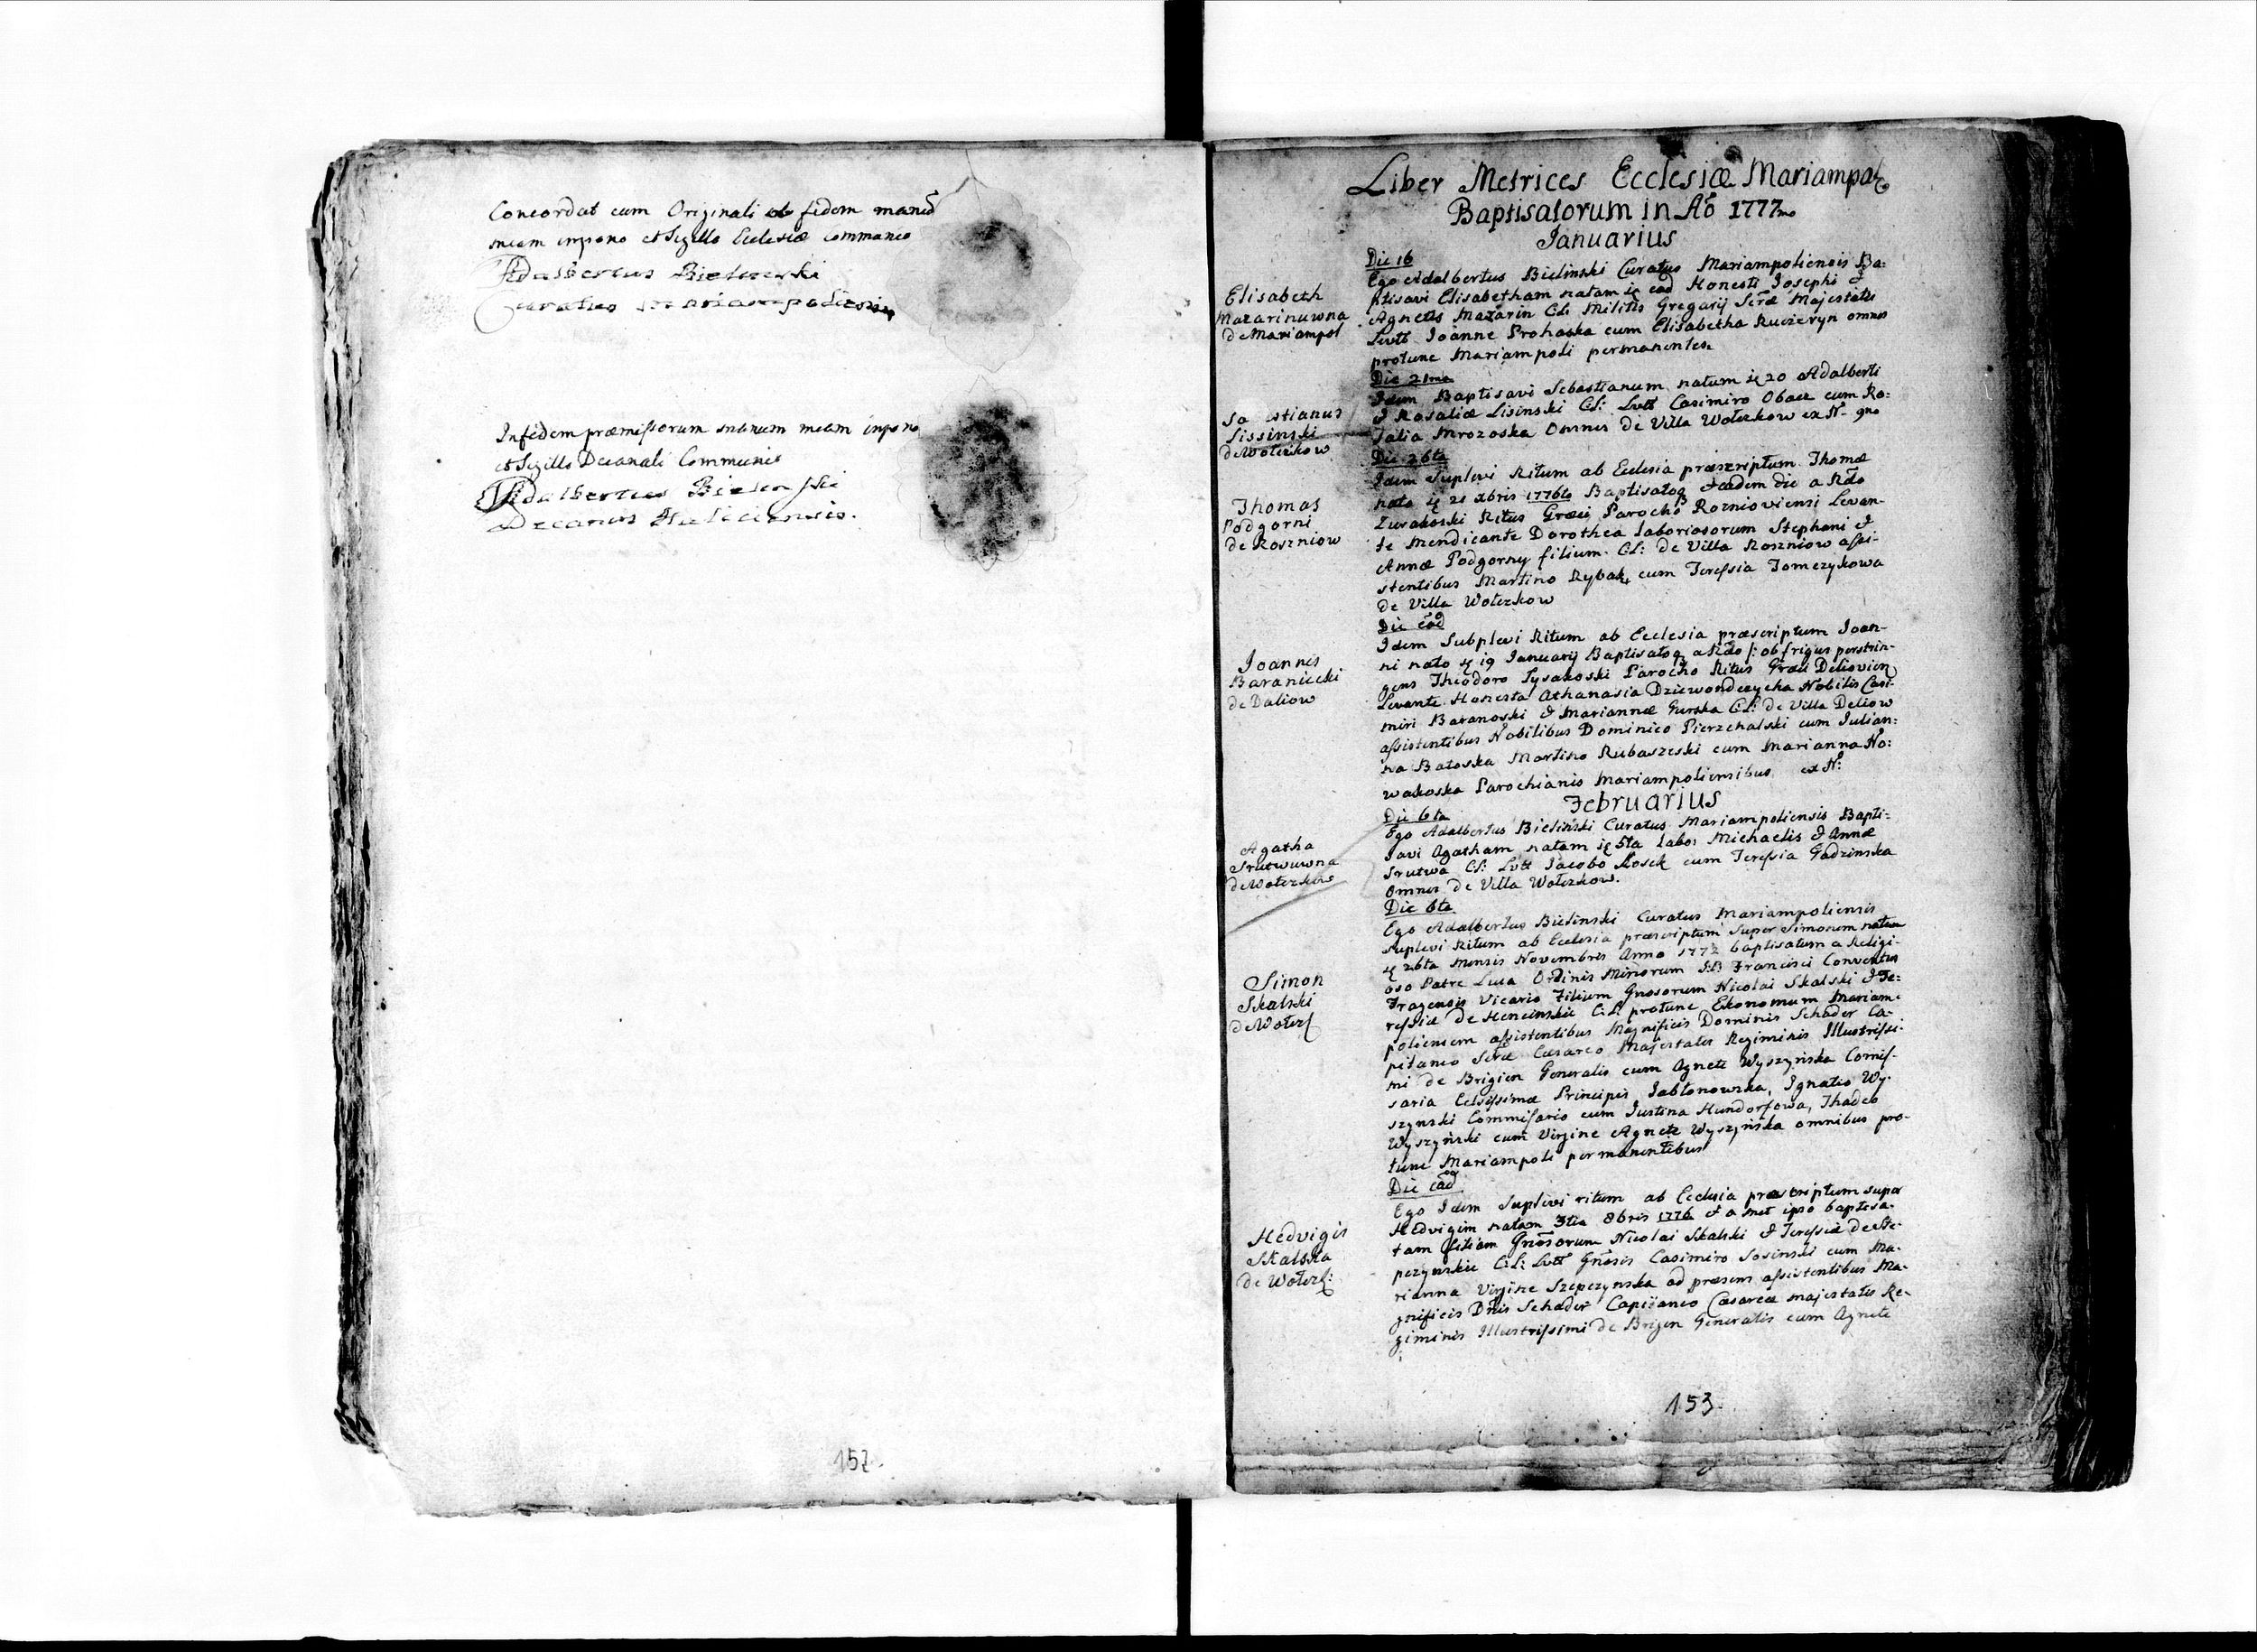 Concordat cum Originali ob fidem manū
meam impono et Sigillo Ecclesiæ Communio
Adalbertus Bielinski
Curatus Mariampoliensis
In fidem præmissorum manum meam impono
et Sigillo Decanali Communio
Adalbertus Bielinski
Decanus Haliciensis.
157
Liber Metrices Ecclesiæ Mariampol
Baptisatorum in Aō 1777mo
Januarius
Elisabeth
Mazarinuwna
de Mariampol
Die 16
Ego Adalbertus Bielinski Curatus Mariampoliensis Ba:
ptisavi Elisabetham natam eād Honesti Josephi &
Agnetis Mazarin C:L: Militis Gregarij Majestatis
Levtt Joanne Prohaska cum Elisabetha omnes
protunc Mariampoli permanentes
Sebastianus
Lissinski
de Wołczkow
Die 21ma
Idem Baptisavi Sebastianum natum 20 Adalberti
& Rosaliæ Lisinski C:L: Lvtt Casimiro Obacz cum Ro:
salia Mrozoska Omnes de Villa Wołczkow ex N-
Thomas
Podgorni
de Roszniow
Die 26ta
Idem Suplevi Ritum ab Ecclesia præscriptum Thomæ
nato 21 xbris 1776to Baptisatoq eadem die a Rdo
Zurakoski Ritus Græci Parocho Roznioviensi Levan-
te Mendicante Dorothea laboriosorum Stephani &
Annæ Podgorny filium. C:L: de Villa Roszniow assi-
stentibus Martino Rybak cum Teressia Tomczykowa
de Villa Wołczkow
Joannes
Baraniecki
de Daliow
Die eād
Idem Subplevi Ritum ab Ecclesia præscriptum Joan-
ni nato 19 Januarij Baptisatoq a Rdo /: ob frigus perstrin-
gens Theodoro Lysakoski Parocho Ritus Græci Deliovien
Levante Honesta Athanasia Dziewondczycha Nobilis Casi-
miri Baranoski & Mariannæ Gurska C:L: de Villa Deliow
assistentibus Nobilibus Dominico Pierzchalski cum Julian:
na Batoska Martino Rubaszeski cum Marianna No:
wakoska Parochianis Mariampoliensibus ex N:
Februarius
Agatha
Srutwuwna
de Wołczkow
Die 6ta
Ego Adalbertus Bielinski Curatus Mariampoliensis Bapti-
savi Agatham natam 5ta Labor Michaelis & Annæ
Srutwa C:L: Lvtt Jacobo Kosek cum Teressia Gadzinska
Omnes de Villa Wołczkow.
Simon
Skalski
de Wołcz
Die 6ta
Ego Adalbertus Bielinski Curatus Mariampoliensis
suplevi Ritum ab Ecclesia præscriptum super Simonem natum
26ta Mensis Novembris Anno baptisatum a Religi-
oso Patre Luca Ordinis Minorum Francisci Conventus
Vicario Filium Gnosorum Nicolai Skalski & Te:
ressiæ de C:L: protunc Ekonomum Mariam-
poliensem assistentibus Magnificis Dominis Schader Ca-
pitaneo Cæsareo Majestatis Regiminis Illustrissi-
mi de Brigien Generalis cum Agnete Wyszynska Comis-
saria Celsissimæ Principis Jabłonowska, Ignatio Wy-
szynski Commissario cum Justina Hundorfowa, Thadeo
Wyszynski cum Virgine Agnete Wyszynska omnibus pro-
tunc Mariampoli permanentibus
Hedvigis
Skalska
de Wołcz:
Die eād
Ego Idem Suplevi ritum ab Ecclesia præscriptum super
Hedvigim natam 3tia 8bris 1776 & a met ipso baptisa-
tam filiam Gnosorum Nicolai Skalski & Teressiæ de Sze-
pczynskie C:L: Lvtt Gnosis Casimiro Sosinski cum Ma-
rianna Virgine Szepczynska ad præsens assistentibus Ma-
gnificis Dnis Schader Capitaneo Cæsareæ majestatis Re-
giminis Illustrissimi de Brigen Generalis cum Agnete
153